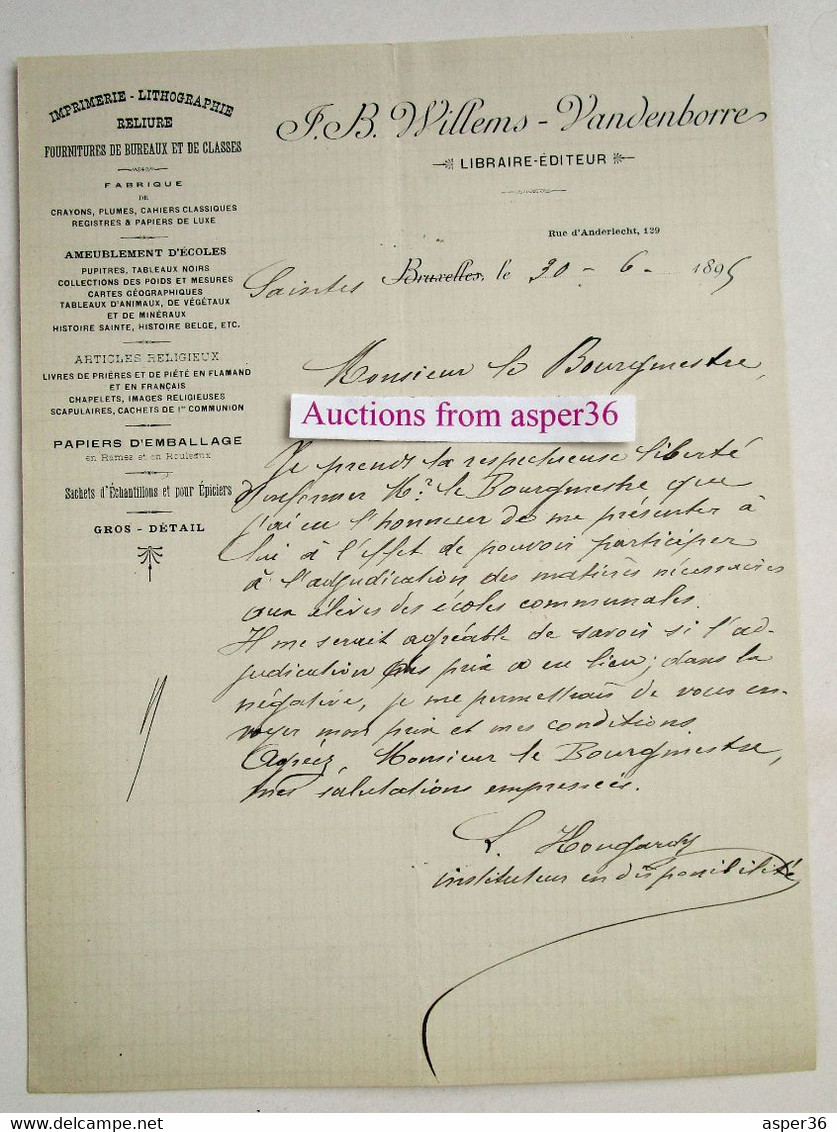 IMPRIMERIE - LITHOGRAPHIE
RELIURE
FOURNITURES DE BUREAUX ET DE CLASSES
FABRIQUE
DE
CRAYONS, PLUMES, CAHIERS CLASSIQUES
REGISTRES & PAPIERS DE LUXE
AMEUBLEMENT D'ÉCOLES
PUPITRES, TABLEAUX NOIRS
COLLECTIONS DES POIDS ET MESURES
CARTES GÉOGRAPHIQUES
TABLEAUX D'ANIMAUX, DE VÉGÉTAUX
ET DE MINÉRAUX
HISTOIRE SAINTE, HISTOIRE BELGE, ETC.
ARTICLES RELIGIEUX
LIVRES DE PRIÈRES ET DE PIÉTÉ EN FLAMAND
ET EN FRANÇAIS
CHAPELETS, IMAGES RELIGIEUSES
SCAPULAIRES, CACHETS DE 1re COMMUNION
PAPIERS D'EMBALLAGE
en Rames et en Rouleaux
Sachets d'Échantillons et pour Épiciers
GROS - DÉTAIL
J. B. Willems - Vandenborre
LIBRAIRE-ÉDITEUR
Rue d'Anderlecht, 129
Saintes Bruxelles, le 30 - 6 - 1895
Monsieur le Bourgmestre,
Auctions from asper36
Je prends la respectueuse liberté
d'informer Mr. le Bourgmestre que
j'ai eu l'honneur de me présenter à
lui à l'effet de pouvoir participer
à l'adjudication des matières nécessaires
aux élèves des écoles communales.
Il me serait agréable de savoir si l'ad-
judication prix a eu lieu; dans la
négative, je me permettrais de vous en-
voyer mon prix et mes conditions.
Agréez, Monsieur le Bourgmestre,
mes salutations empressées.
L. Hougardy
instituteur en disponibilité
asper36
asper36